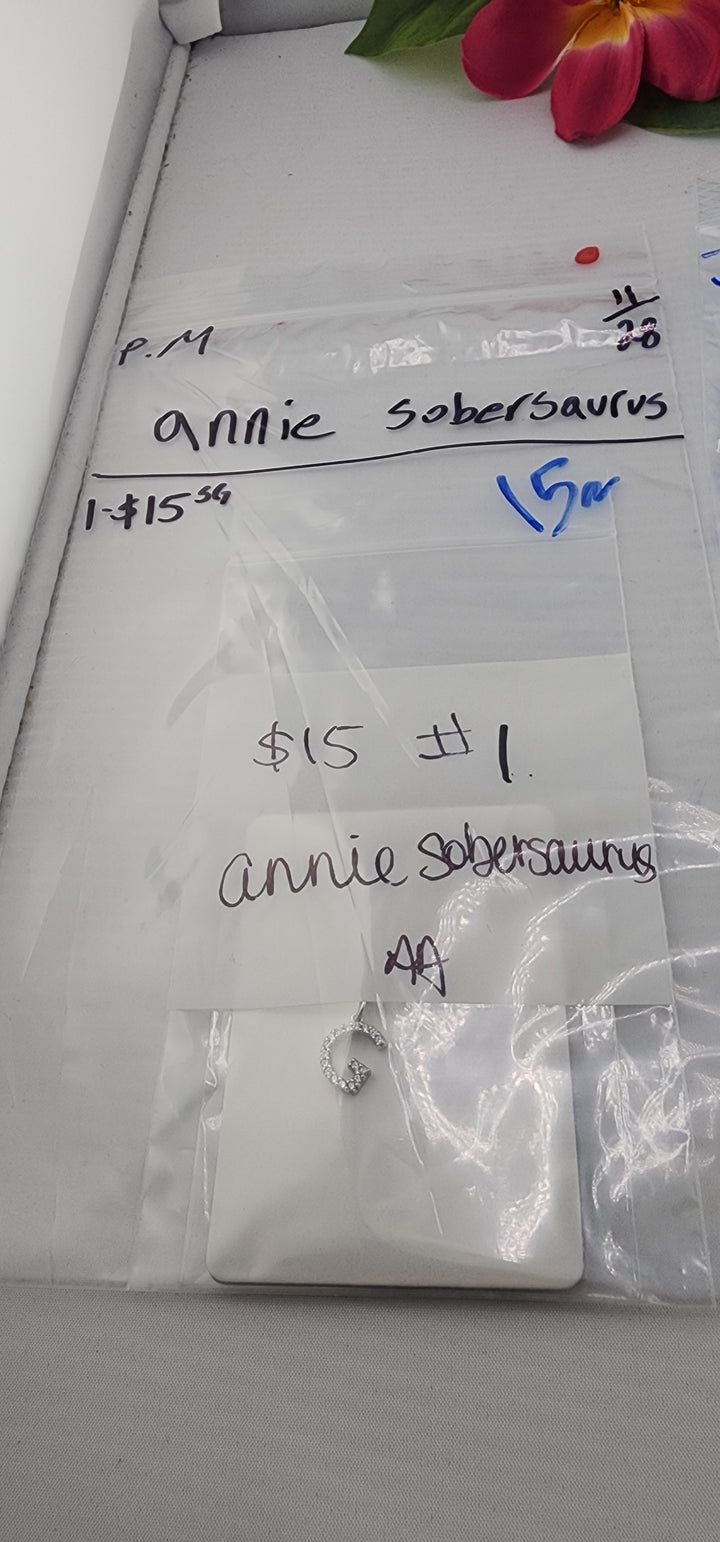 P.M
11/28
annie sobersaurus
1-$15 SG
15
$15 #1
annie sobersaurus
AA